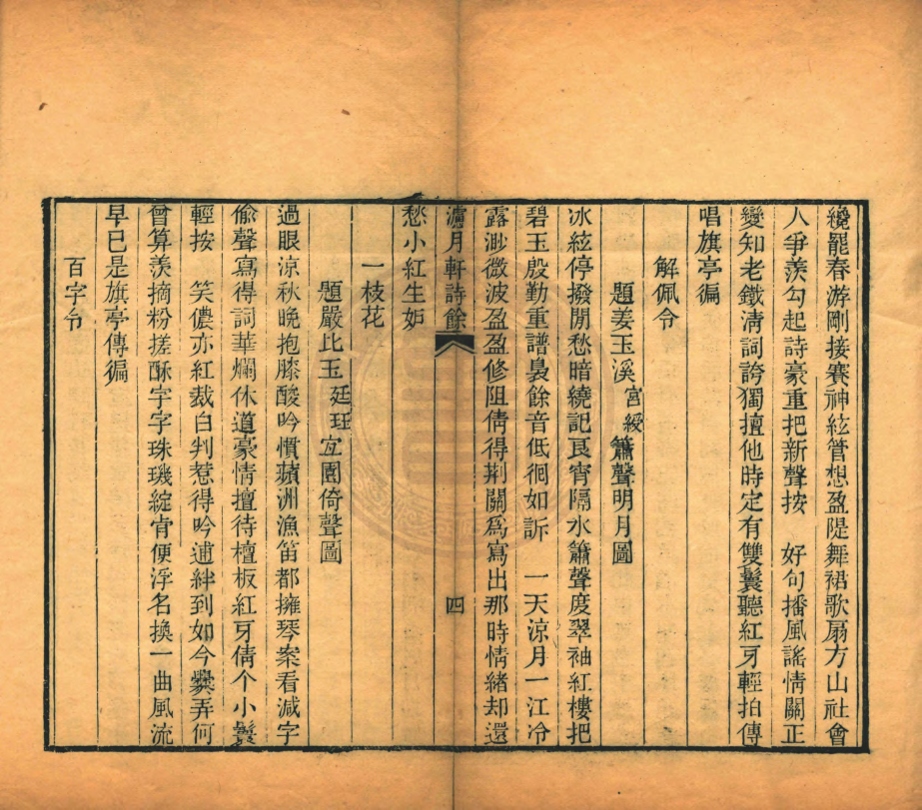 纔罷春游剛接賽神絃管想盈隄舞裙歌扇方山社會
人爭羨勾起詩豪重把新聲按　好句播風謠情關正
變知老鐵淸詞誇獨擅他時定有雙鬟聽紅牙輕拍傳
唱旗亭徧
解佩令
題姜玉溪宮綬簫聲明月圖
冰絃停撥閒愁暗繞記良宵隔水簫聲度翠袖紅樓把
碧玉殷勤重譜裊餘音低徊如訴　一天涼月一江冷
露渺微波盈盈修阻倩得荆關爲寫出那時情緒却還
濾月軒詩餘　四
愁小紅生妒
一枝花
題嚴比玉廷珏宜園倚聲圖
過眼涼秋晚抱膝酸吟慣蘋洲漁笛都擁琴案看減字
偸聲寫得詞華爛休道豪情擅待檀板紅牙倩个小鬟
輕按　笑儂亦紅裁白判惹得吟逋絆到如今爨弄何
曾算羨摘粉搓酥字字珠璣綻肯便浮名換一曲風流
早已是旗亭傳徧
百字令